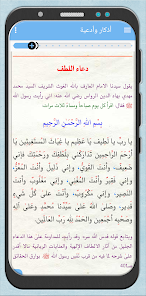 أذكار وأدعية
دعاء اللطف
يقول سيدنا الإمام العارف بالله الغوث الشريف السيد محمد
مهدي بهاء الدين الرواس رضي الله عنه: إني رأيت رسول الله
ﷺ فقال: اقرأ كل يوم صباحاً ومساءً ثلاث مرات.
بِسْمِ اللَّهِ الرَّحْمَنِ الرَّحِيمِ
يَا رَبُّ يَا لَطِيفُ يَا عَظِيمُ يَا غِيَاثَ الْمُسْتَغِيثِينَ يَا
أَرْحَمَ الرَّاحِمِينَ تَدَارَكْنِي بِلُطْفِكَ وَرَحْمَتِكَ فَإِنِّي
ضَعِيفٌ، وَأَنْتَ الْقَوِيُّ، وَإِنِّي ذَلِيلٌ وَأَنْتَ الْعَزِيزُ، وَإِنِّي
فَقِيرٌ وَأَنْتَ الْمُغْنِي، وَإِنِّي مَغْلُوبٌ وَأَنْتَ
الْمُعِينُ، وَإِنِّي مَكْرُوبٌ، وَأَنْتَ كَاشِفُ كُلِّ
هَمٍّ، وَصَلِّ اللَّهُمَّ عَلَى سَيِّدِنَا مُحَمَّدٍ وَعَلَى آلِهِ
وَصَحْبِهِ أَجْمَعِينَ وَالْحَمْدُ لِلَّهِ رَبِّ الْعَالَمِينَ.